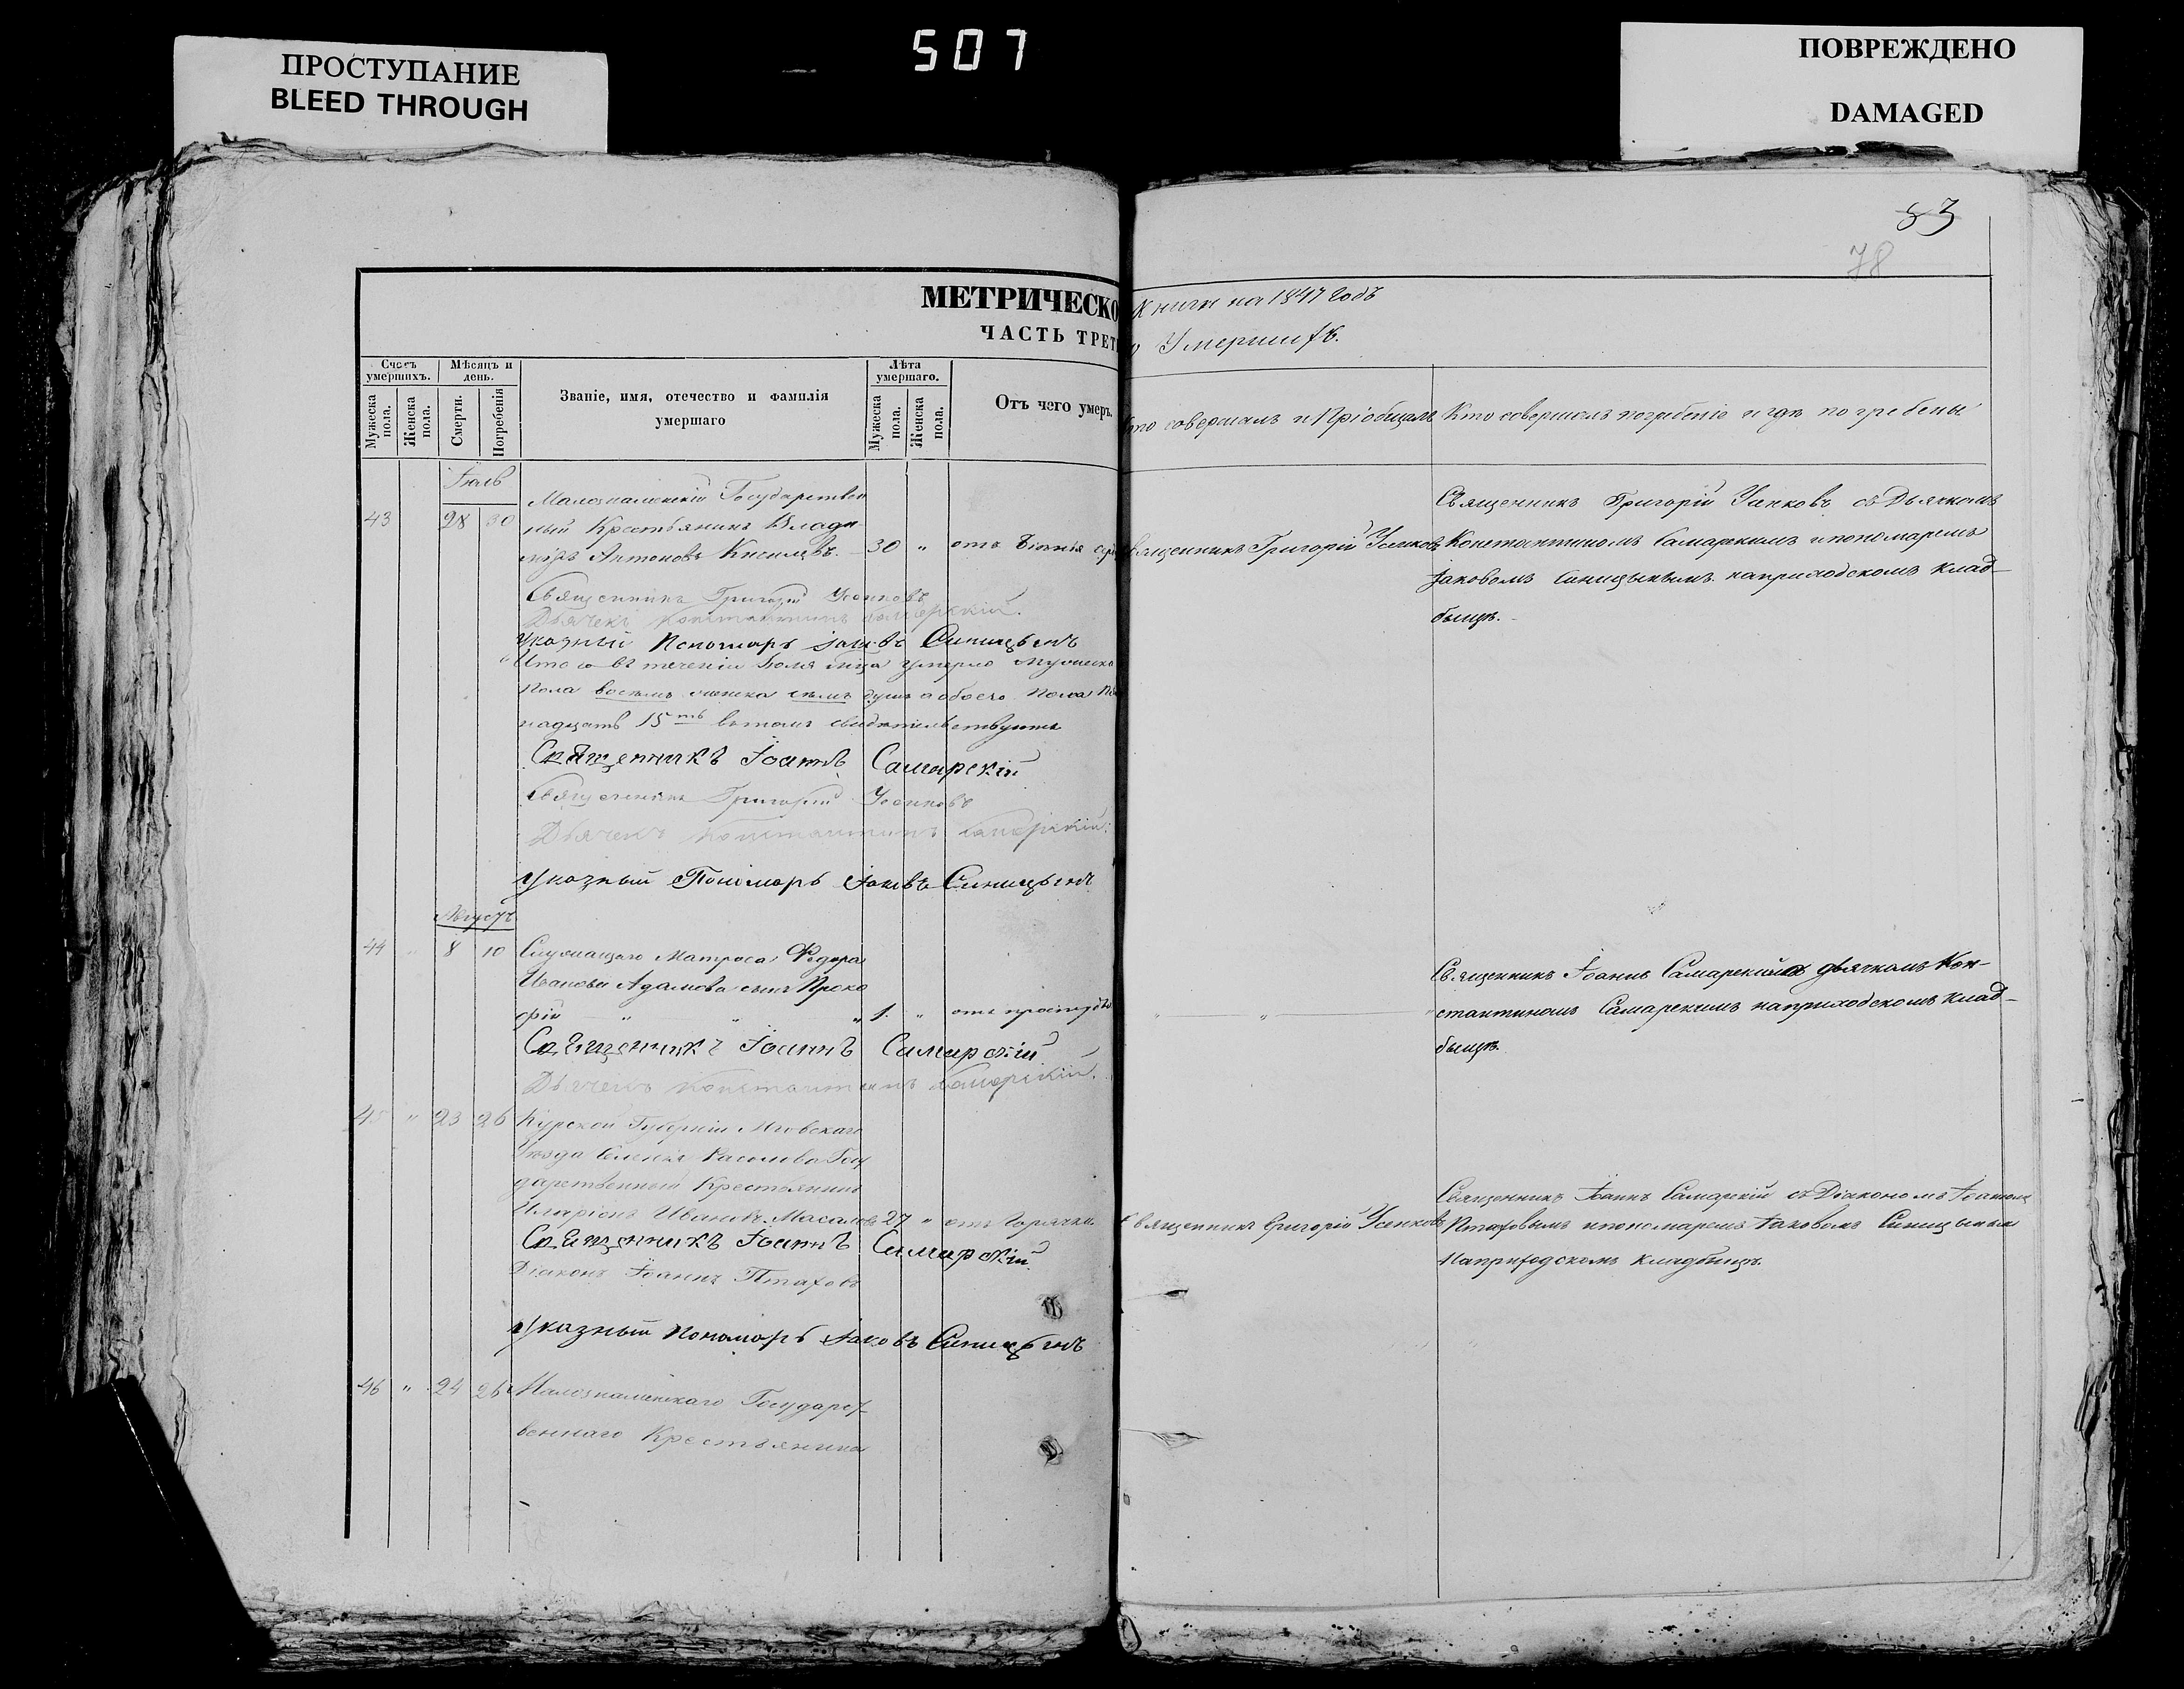 507
ПРОСТУПАНИЕ
BLEED THROUGH
ПОВРЕЖДЕНО
DAMAGED
83
78
МЕТРИЧЕСКО
ЧАСТЬ ТРЕТ
Счетъ умершихъ.
Мужеска пола.
Женска пола.
Мѣсяцъ и день.
Смерти.
Погребенія
Званіе, имя, отечество и фамилія
умершаго
Лѣта умершаго.
Мужеска пола.
Женска пола.
Отъ чего умеръ.
Іюль
43 28 30
Малознаменскій Государствен
ный Крестьянинъ Влади
міръ Антоновъ Киселевъ. 30 " отъ
Священникъ Григорій Усенковъ
Дьячекъ Константинъ Самарскій.
Указный Пономарь Іаковъ Синицынъ
Итого въ теченіи Іюля м͠ца умерло мужеска
пола восемь женска семь душъ а обоего пола
надцать 15ть въ томъ свидѣтельствуютъ
Священникъ Іоаннъ Самарскій
Священникъ Григорій Усенковъ
Дьячекъ Константинъ Самарскій:
Указный Пономарь Іаковъ Синицынъ
Августъ
44 " 8 10 Служащаго Матроса Федора
Иванова Адамова сынъ Проко
фій " " " 1. " отъ простуды
Священникъ Іоаннъ Самарскій
Дьячекъ Константинъ Самарскій.
45 " 23 26 Курской Губерніи Льговскаго
Уѣзда Селенія Госу
дарственный Крестьянинъ
Иларіонъ Ивановъ Масаловъ 27 " отъ Горячки
Священникъ Іоаннъ Самарскій
Діаконъ Іоаннъ Птаховъ
Указный Пономарь Іаковъ Синицынъ
46 " 24 26 Малознаменскаго Государст
веннаго Крестьянина
Книги на 1847 Годъ
Умершихъ.
Кто совершалъ погребеніе и гдѣ погребены
то совершалъ и Пріобщалъ
Священникъ Григорій Усенковъ съ Дьячкомъ
вященникъ Григорій Усенковъ
Константиномъ Самарскимъ и пономаремъ
Іаковомъ Синицынымъ на приходскомъ клад-
бищѣ.
Священникъ Іоаннъ Самарскій съ дьячкомъ Кон-
" " "
стантиномъ Самарскимъ на приходскомъ клад-
бищѣ.
Священникъ Іоаннъ Самарскій съ Діакономъ Іоанномъ
Священникъ Григорій Усенковъ
Птаховымъ и пономаремъ Іаковомъ Синицынымъ
На приходскомъ кладбищѣ.